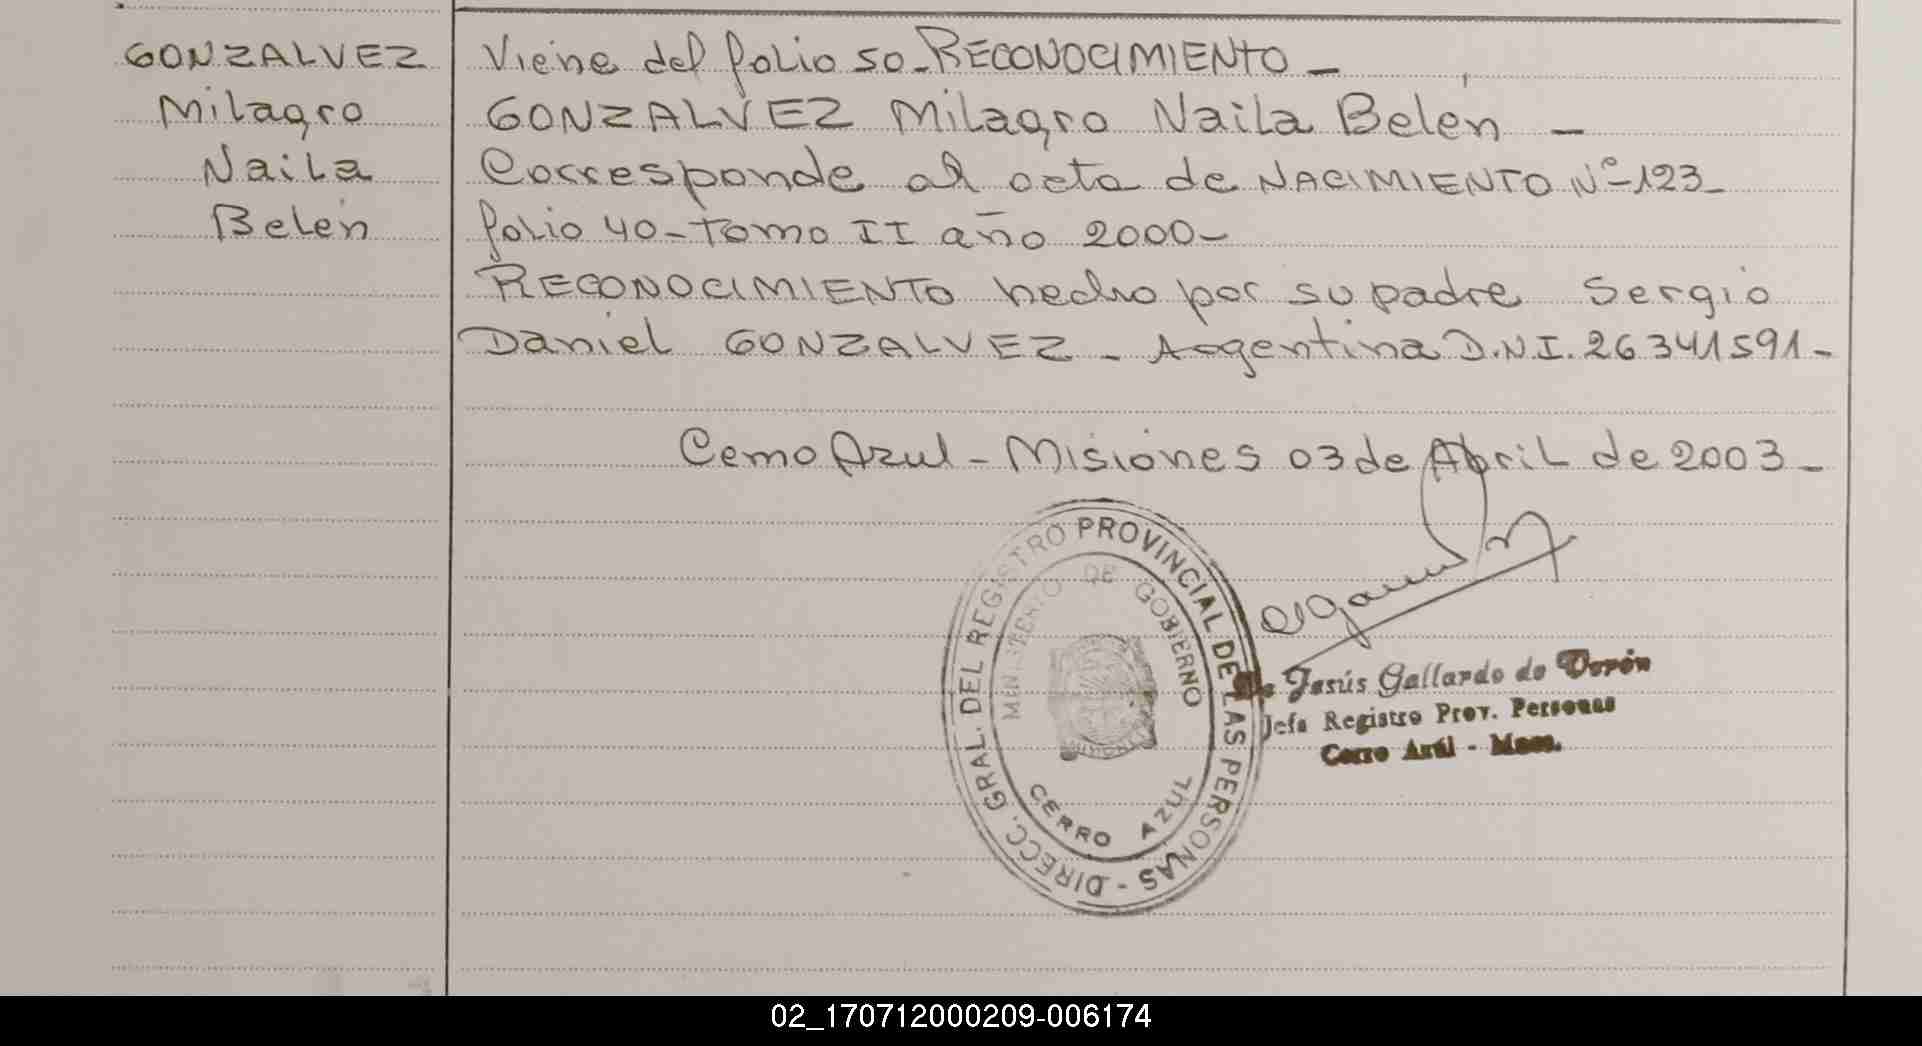 GONZALVEZ
Milagro
Naila
Belén
Viene del folio 50-RECONOCIMIENTO-
GONZALVEZ Milagro Naila Belén -
Corresponde al acta de NACIMIENTO Nº-123-
folio 40-Tomo II año 2000-
RECONOCIMIENTO hecho por su padre Sergio
Daniel GONZALVEZ - Argentina D.N.I. 26341591-
Cerro Azul - Misiones 03 de Abril de 2003-
DIRECC. GRAL. DEL REGISTRO PROVINCIAL DE LAS PERSONAS -
MINISTERIO DE GOBIERNO
CERRO AZUL
Jesús Gallardo de Verón
Jefa Registro Prov. Personas
Cerro Azúl - Mnes.
02_170712000209-006174